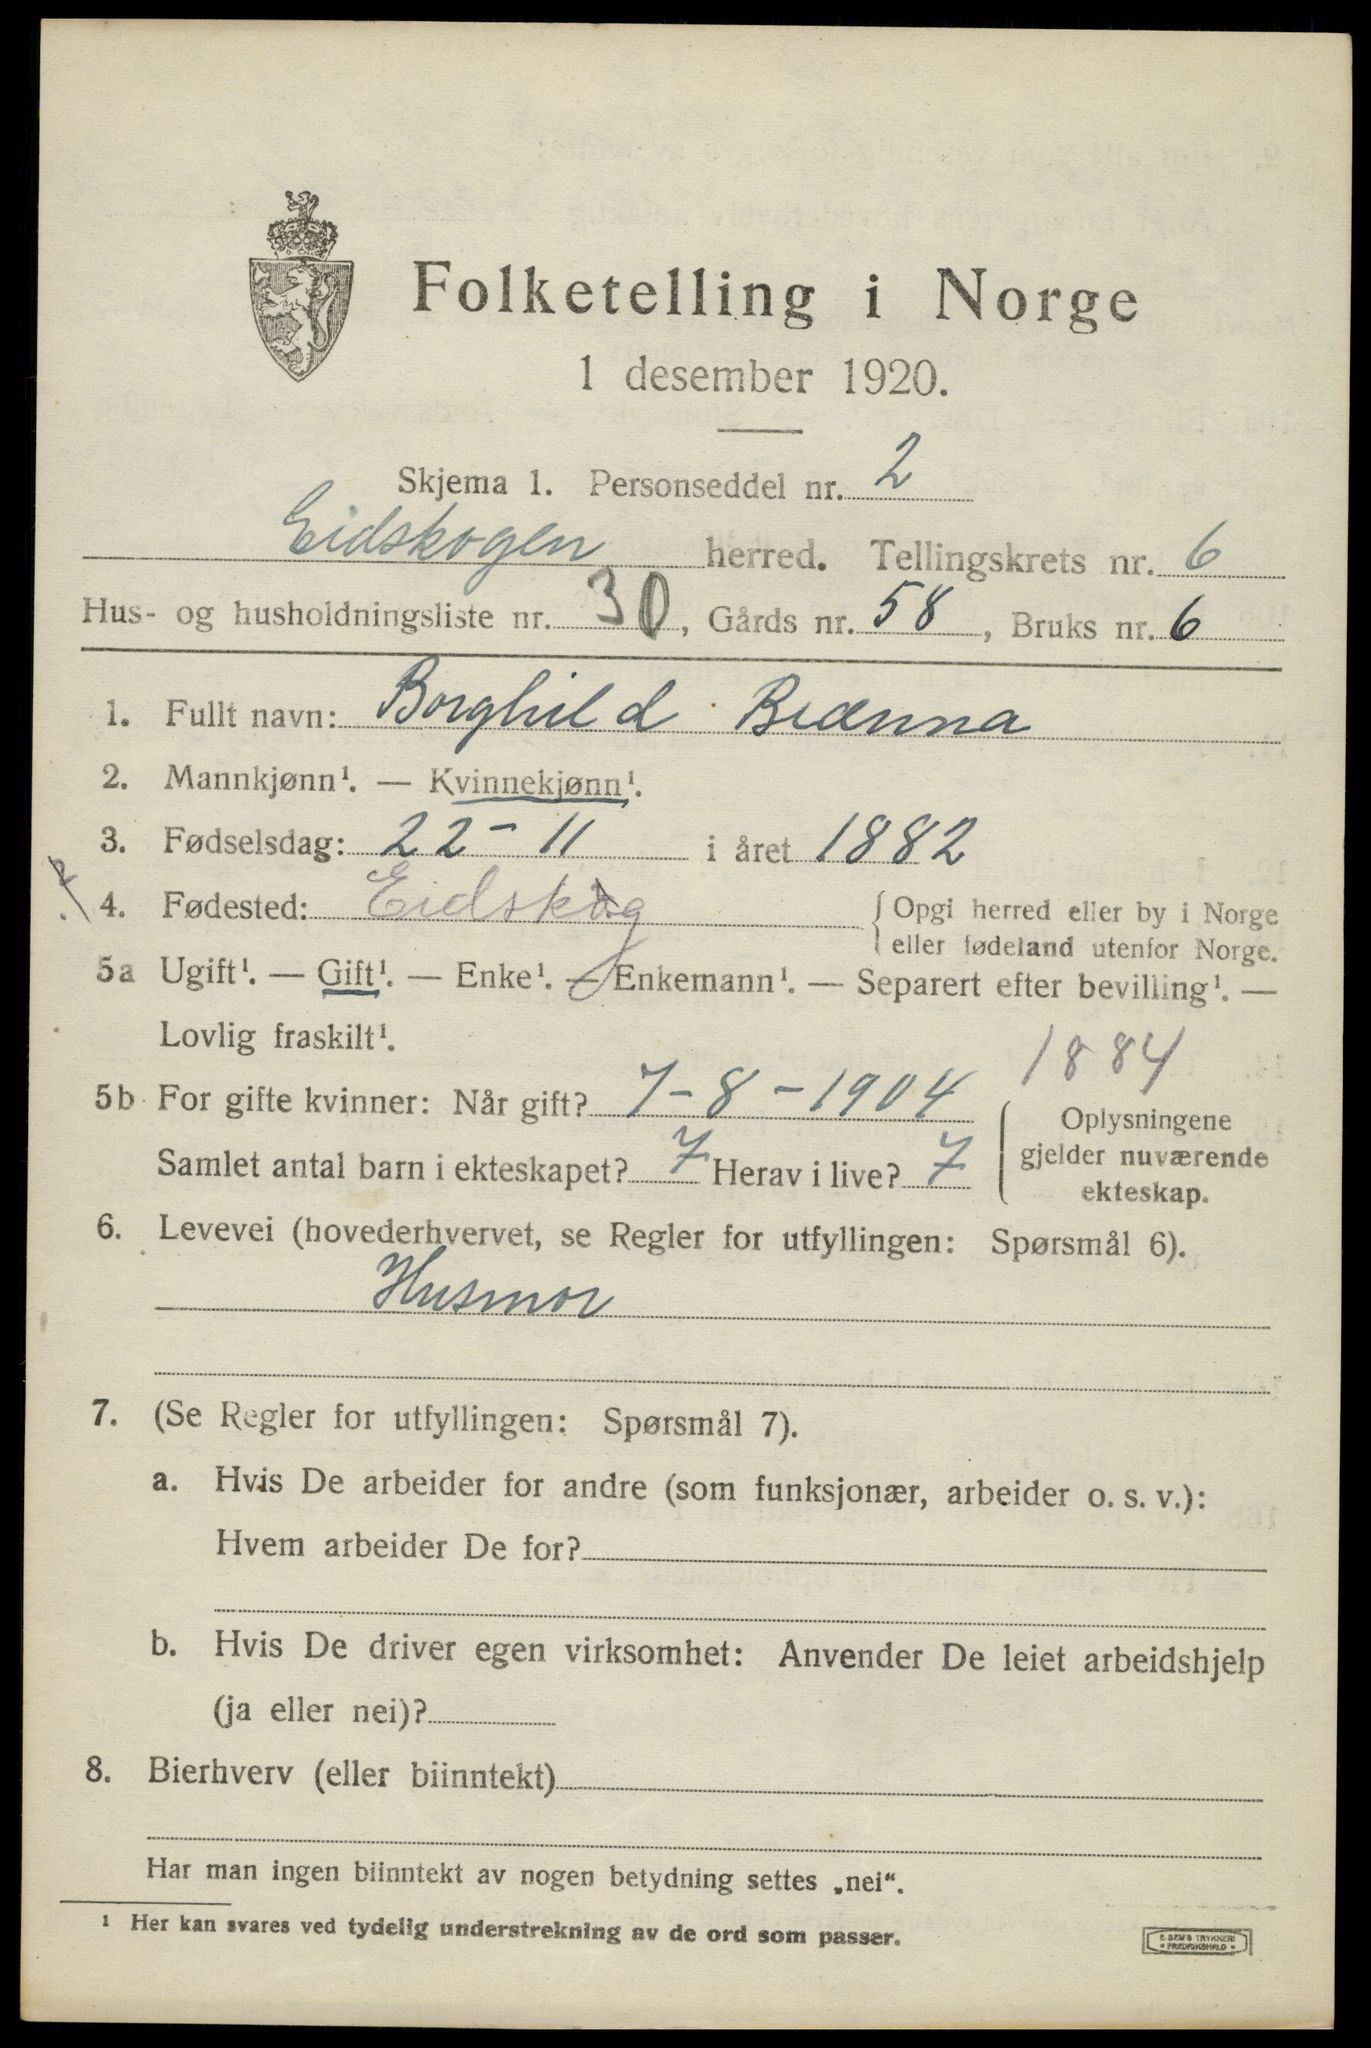 Folketelling i Norge
1 desember 1920.
Skjema 1. Personseddel nr. 2
Eidskogen herred. Tellingskrets nr. 6
Hus- og husholdningsliste nr. 30, Gårds nr. 58, Bruks nr. 6
1. Fullt navn: Borghild Brænna
2. Mannkjønn¹. — Kvinnekjønn¹.
3. Fødselsdag: 22-11 i året 1882
4. Fødested: Eidskog { Opgi herred eller by i Norge
eller fødeland utenfor Norge.
5a Ugift¹. — Gift¹. — Enke¹. — Enkemann¹. — Separert efter bevilling¹. —
Lovlig fraskilt¹.
1884
5b For gifte kvinner: Når gift? 7-8-1904
Samlet antal barn i ekteskapet? 7 Herav i live? 7
Oplysningene
gjelder nuværende
ekteskap.
6. Levevei (hovederhvervet, se Regler for utfyllingen: Spørsmål 6).
Husmor
7. (Se Regler for utfyllingen: Spørsmål 7).
a. Hvis De arbeider for andre (som funksjonær, arbeider o. s. v.):
Hvem arbeider De for?
b. Hvis De driver egen virksomhet: Anvender De leiet arbeidshjelp
(ja eller nei)?
8. Bierhverv (eller biinntekt)
Har man ingen biinntekt av nogen betydning settes „nei“.
¹ Her kan svares ved tydelig understrekning av de ord som passer.
E. SEM'S TRYKKERI
• FREDRIKSHALD •